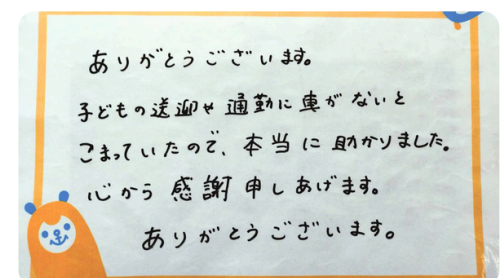 ありがとうございます。
子どもの送迎や通勤に車がないと
こまっていたので、本当に助かりました。
心から感謝申しあげます。
ありがとうございます。